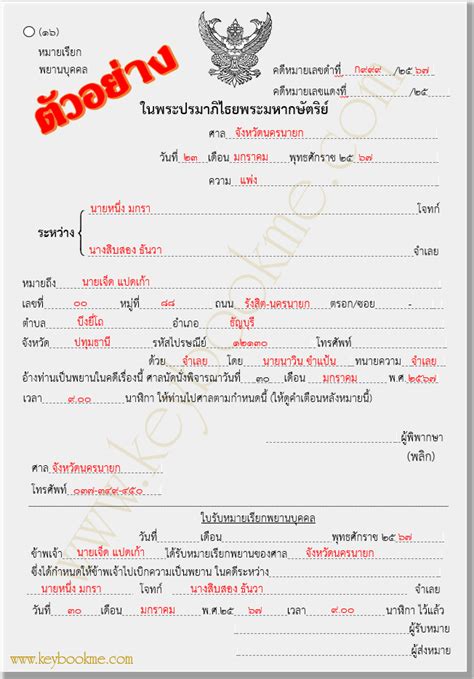 (๑๖)
หมายเรียก
พยานบุคคล
ตัวอย่าง
คดีหมายเลขดำที่ ก๙๙๙ /๒๕ ๖๗
คดีหมายเลขแดงที่ /๒๕
ในพระปรมาภิไธยพระมหากษัตริย์
ศาล จังหวัดนครนายก
วันที่ ๒๓ เดือน มกราคม พุทธศักราช ๒๕ ๖๗
ความ แพ่ง
นายหนึ่ง มกรา โจทก์
ระหว่าง
นางสิบสอง ธันวา จำเลย
หมายถึง นายเจ็ด แปดเก้า
เลขที่ ๐๐ หมู่ที่ ๘๘ ถนน รังสิต-นครนายก ตรอก/ซอย -
ตำบล บึงยี่โถ อำเภอ ธัญบุรี
จังหวัด ปทุมธานี รหัสไปรษณีย์ ๑๒๑๓๐ โทรศัพท์
ด้วย จำเลย โดย นายนาวิน ขำแป้น ทนายความ จำเลย
อ้างท่านเป็นพยานในคดีเรื่องนี้ ศาลนัดนั่งพิจารณาวันที่ ๓๐ เดือน มกราคม พ.ศ. ๒๕๖๗
เวลา ๙.๐๐ นาฬิกา ให้ท่านไปศาลตามกำหนดนี้ (ให้ดูคำเตือนหลังหมายนี้)
ผู้พิพากษา
(พลิก)
ศาล จังหวัดนครนายก
โทรศัพท์ ๐๓๗-๓๔๙-๔๕๐
ใบรับหมายเรียกพยานบุคคล
วันที่ เดือน พุทธศักราช ๒๕ ๖๗
ข้าพเจ้า นายเจ็ด แปดเก้า ได้รับหมายเรียกพยานของศาล จังหวัดนครนายก
ซึ่งได้กำหนดให้ข้าพเจ้าไปเบิกความเป็นพยาน ในคดีระหว่าง
นายหนึ่ง มกรา โจทก์ นางสิบสอง ธันวา จำเลย
วันที่ ๓๐ เดือน มกราคม พ.ศ.๒๕ ๖๗ เวลา ๙.๐๐ นาฬิกา ไว้แล้ว
ผู้รับหมาย
ผู้ส่งหมาย
www.keybookme.com
www.keybookme.com